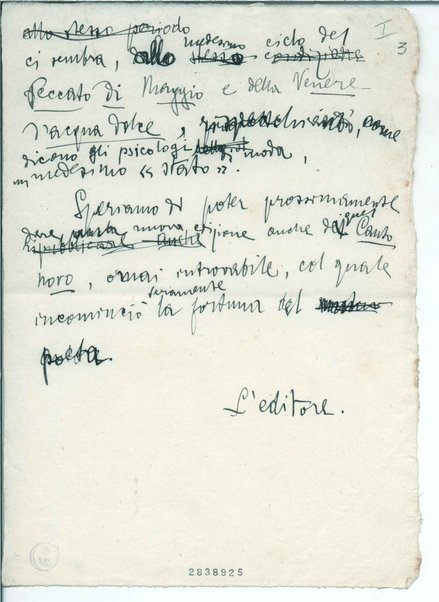 I
3
allo stesso periodo
medesimo ciclo del
ci sembra, dallo stesso
Peccato di Maggio e della Venere
d'acqua dolce, come
dicono gli psicologi di moda,
un medesimo « stato ».
Speriamo di poter prossimamente
dare nuova edizione anche del Canto
ripubblicare anche
novo, ormai introvabile, col quale
seriamente
incominciò la fortuna del
poeta.
L'editore.
2838925